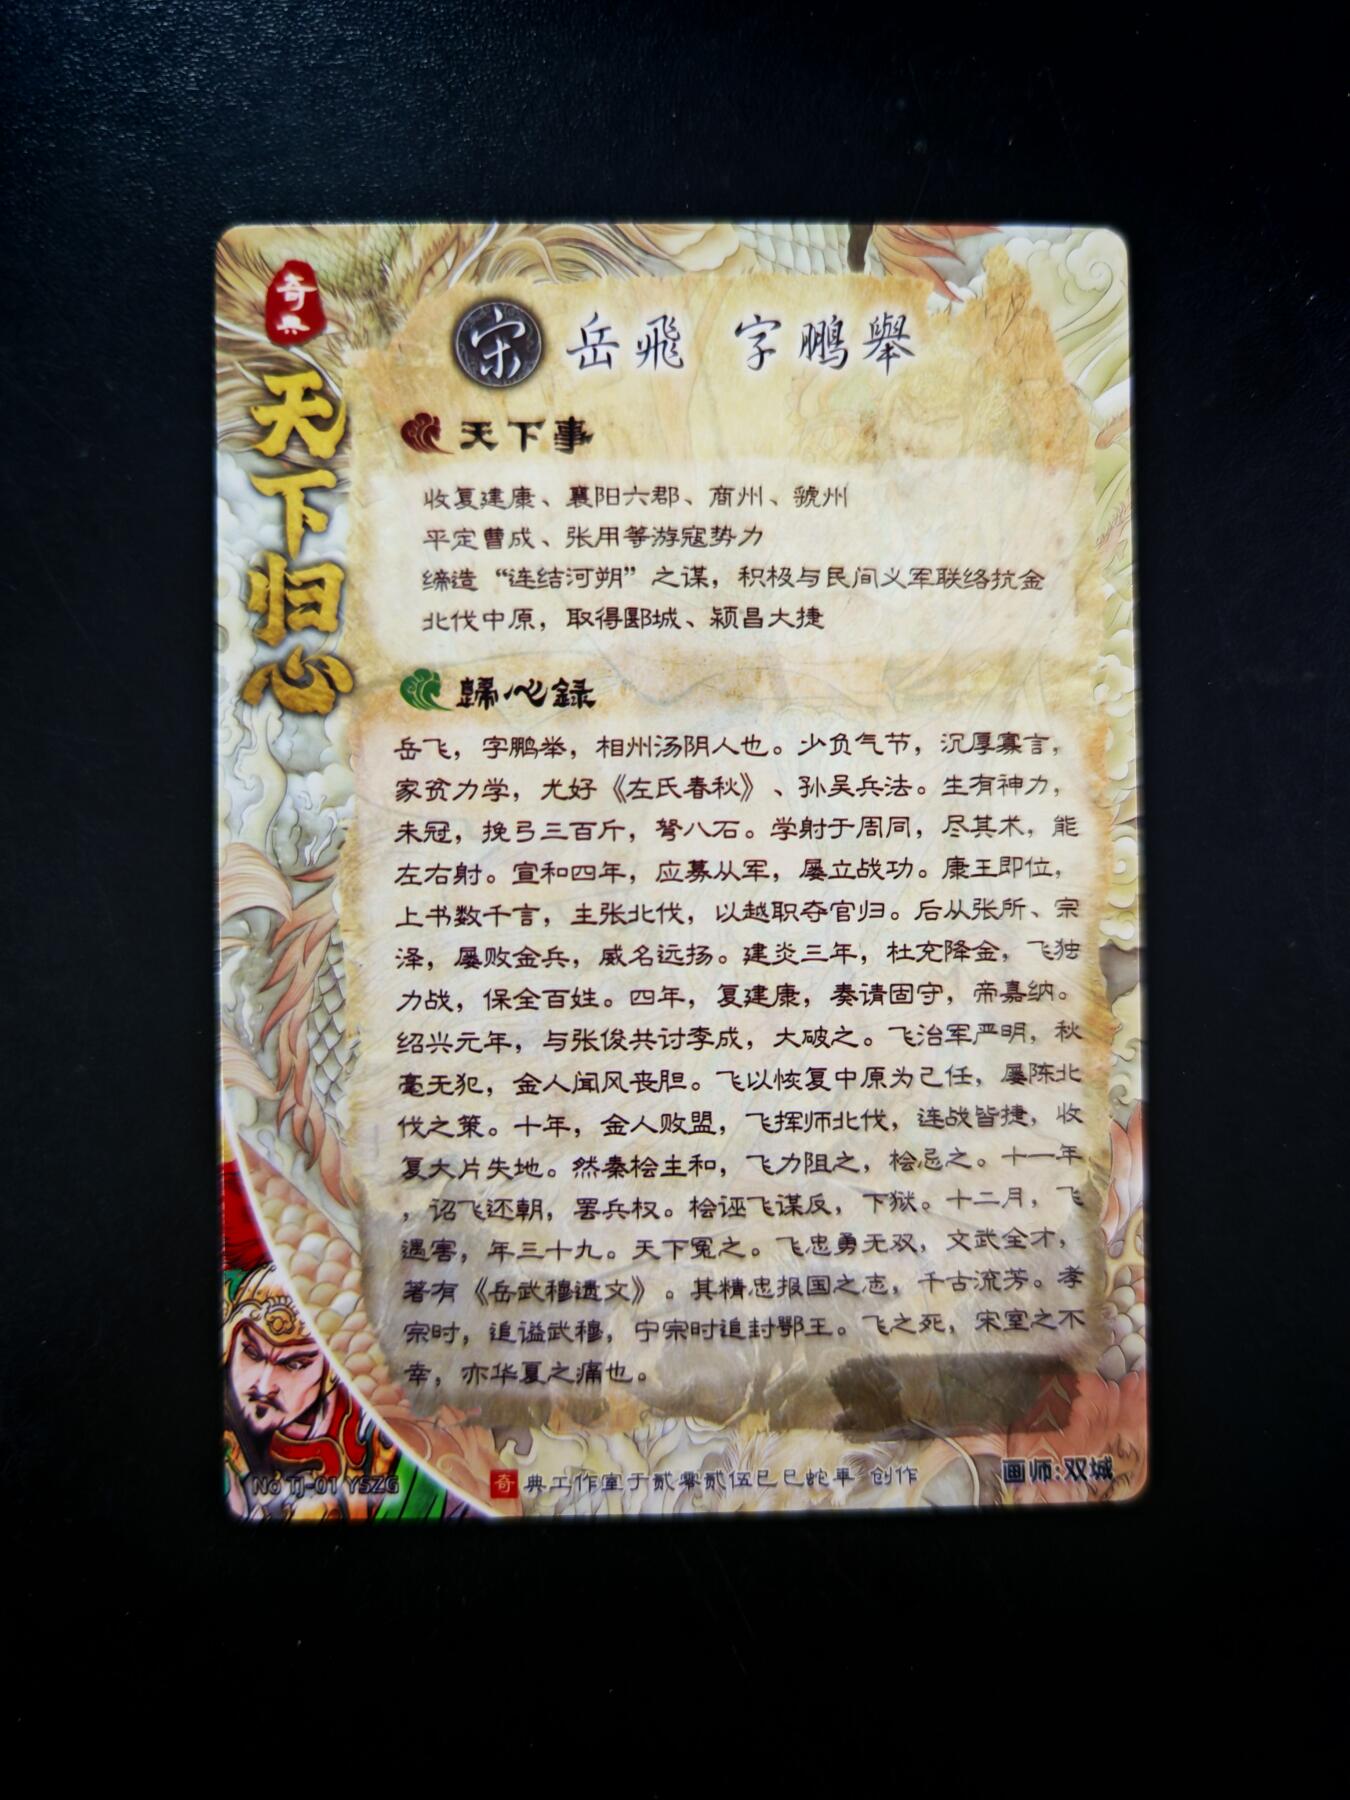 奇典
天下归心
宋 岳飛 字鵬舉
天下事
收复建康、襄阳六郡、商州、虢州
平定曹成、张用等游寇势力
缔造“连结河朔”之谋，积极与民间义军联络抗金
北伐中原，取得郾城、颍昌大捷
歸心録
岳飞，字鹏举，相州汤阴人也。少负气节，沉厚寡言，
家贫力学，尤好《左氏春秋》、孙吴兵法。生有神力，
未冠，挽弓三百斤，弩八石。学射于周同，尽其术，能
左右射。宣和四年，应募从军，屡立战功。康王即位，
上书数千言，主张北伐，以越职夺官归。后从张所、宗
泽，屡败金兵，威名远扬。建炎三年，杜充降金，飞独
力战，保全百姓。四年，复建康，奏请固守，帝嘉纳。
绍兴元年，与张俊共讨李成，大破之。飞治军严明，秋
毫无犯，金人闻风丧胆。飞以恢复中原为己任，屡陈北
伐之策。十年，金人败盟，飞挥师北伐，连战皆捷，收
复大片失地。然秦桧主和，飞力阻之，桧忌之。十一年
，诏飞还朝，罢兵权。桧诬飞谋反，下狱。十二月，飞
遇害，年三十九。天下冤之。飞忠勇无双，文武全才，
著有《岳武穆遗文》。其精忠报国之志，千古流芳。孝
宗时，追谥武穆，宁宗时追封鄂王。飞之死，宋室之不
幸，亦华夏之痛也。
No TJ-01 YSZG
奇典工作室于贰零贰伍巳巳蛇年 创作
画师:双城